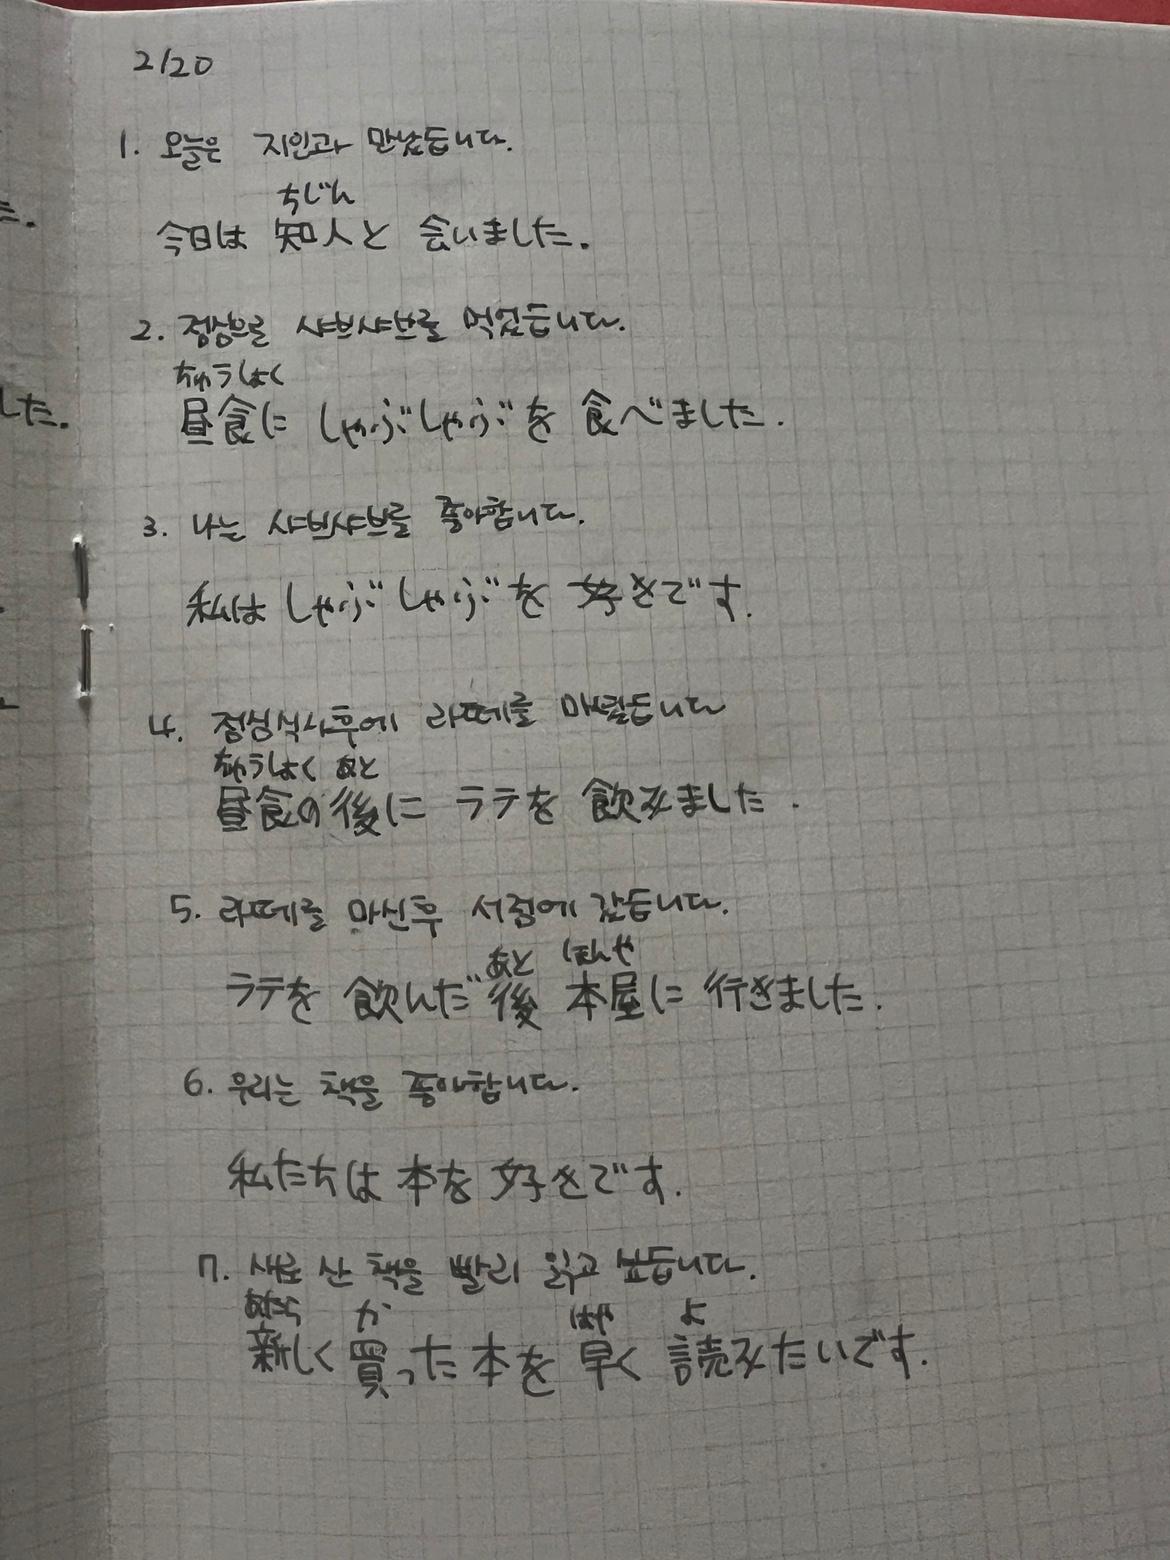 た.
した.
2/20
1. 오늘은 지인과 만났습니다.
ちじん
今日は 知人と 会いました.
2. 점심으로 샤브샤브를 먹었습니다.
ちゅうしょく
昼食に しゃぶしゃぶを 食べました.
3. 나는 샤브샤브를 좋아합니다.
私は しゃぶしゃぶを 好きです.
4. 점심식사후에 라떼를 마셨습니다
ちゅうしょく あと
昼食の 後に ラテを 飲みました.
5. 라떼를 마신후 서점에 갔습니다.
あと ほんや
ラテを 飲んだ 後 本屋に 行きました.
6. 우리는 책을 좋아합니다.
私たちは 本を 好きです.
7. 새로 산 책을 빨리 읽고 싶습니다.
あたら か はや よ
新しく 買った 本を 早く 読みたいです.